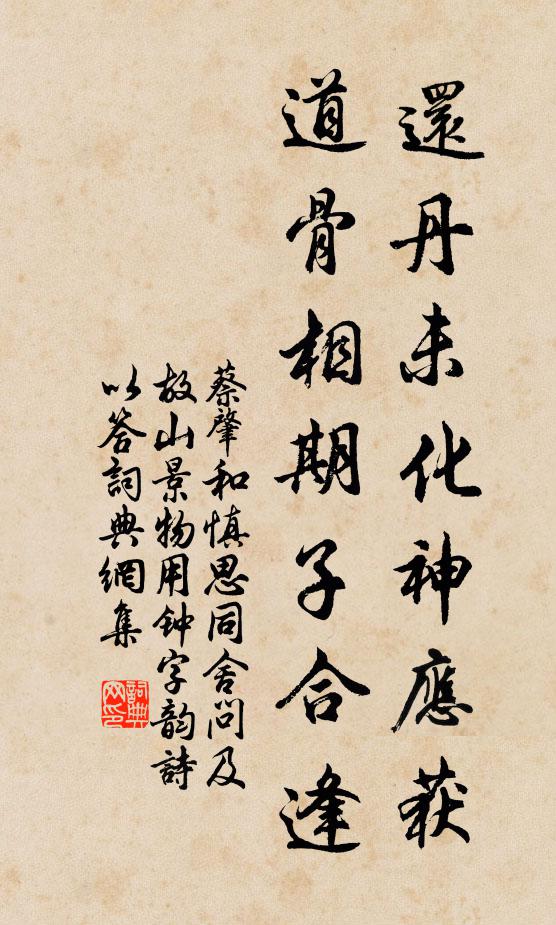 還丹未化神應获
道骨相期子合逢
蔡肇和慎思同舍問及
故山景物用钟字韵詩
以答詞典網集
詞典網印